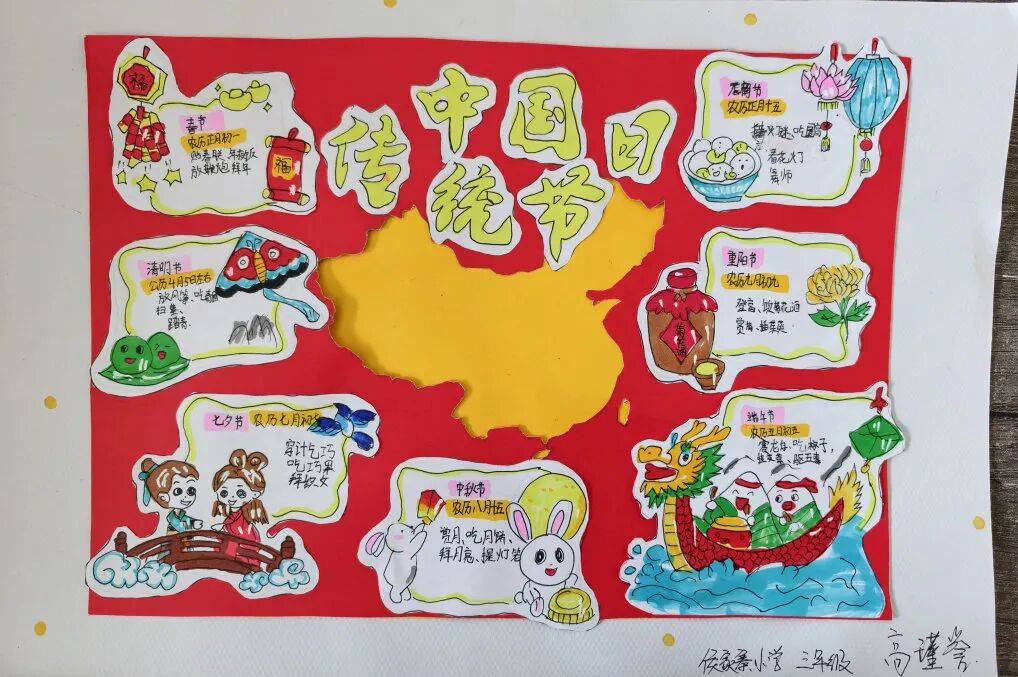 中国
传统节日
福
春节
农历正月初一
贴春联 年夜饭
放鞭炮 拜年
福
元宵节
农历正月十五
猜灯谜、吃
看花灯
舞师
清明节
公历4月5日左右
放风筝、吃
扫墓、
踏青.
重阳节
农历九月初九
登高、饮菊花酒
赏菊、插茱萸
菊花酒
七夕节 农历七月初七
穿针乞巧
吃巧果
拜织女
中秋节
农历八月十五
赏月、吃月饼、
拜月亮、提灯笼
端午节
农历五月初五
赛龙舟、吃粽子,
驱五毒
小学 三年级 高瑾